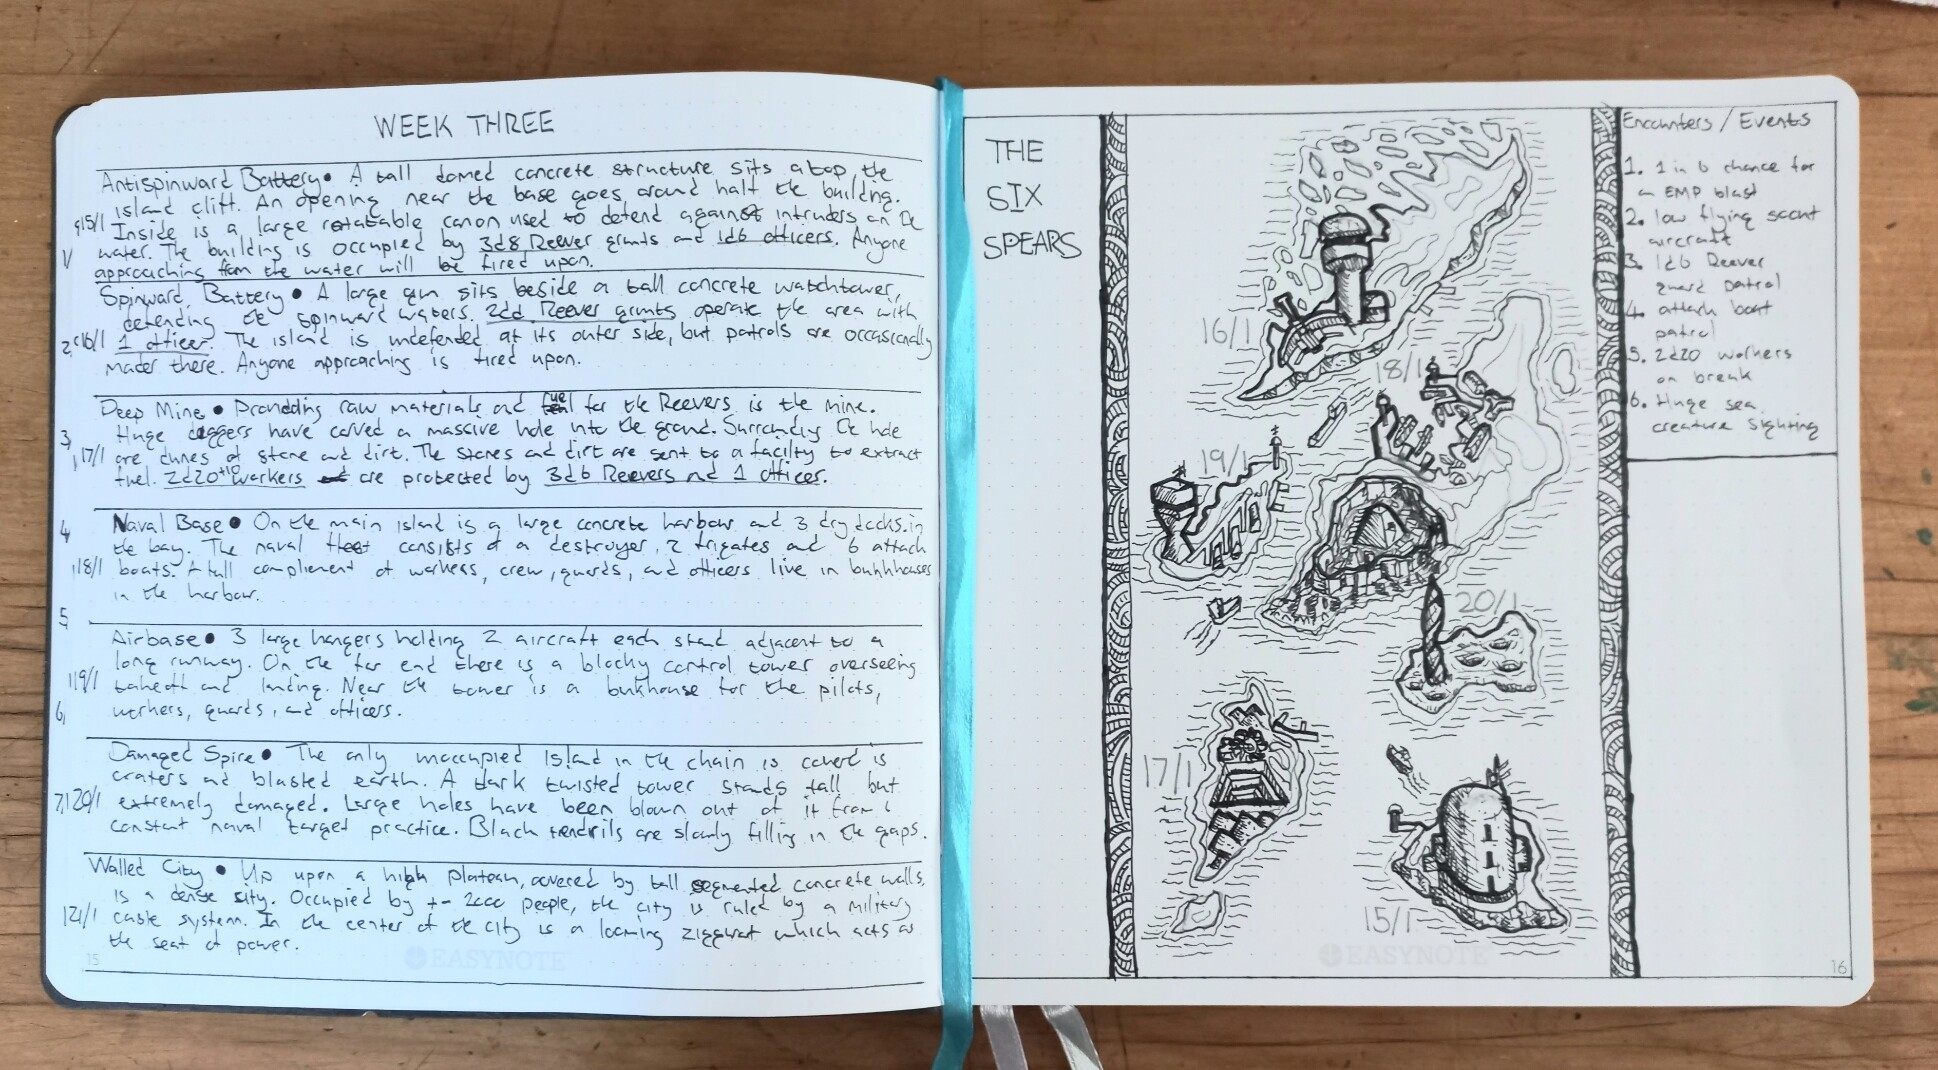 WEEK THREE
Antispinward Battery • A tall domed concrete structure sits atop the
island cliff. An opening near the base goes around half the building.
15/1 Inside is a large rotatable canon used to defend against intruders on the
1/ water. The building is occupied by 3d8 Reever grunts and 1d6 officers. Anyone
approaching from the water will be fired upon.
Spinward Battery • A large gun sits beside a tall concrete watchtower,
defending the spinward waters. 2d6 Reever grunts operate the area with
2, 16/1 1 officer. The island is undefended at its outer side, but patrols are occasionally
made there. Anyone approaching is fired upon.
Deep Mine • Providing raw materials and fuel for the Reevers is the mine.
3, Huge diggers have carved a massive hole into the ground. Surrounding the hole
17/1 are dunes of stone and dirt. The stones and dirt are sent to a facility to extract
fuel. 2d20+10 workers are protected by 3d6 Reevers and 1 officer.
4, Naval Base • On the main island is a large concrete harbour and 3 dry docks in
the bay. The naval fleet consists of a destroyer, 2 frigates and 6 attack
18/1 boats. A full compliment of workers, crew, guards, and officers live in bunkhouses
in the harbour.
5,
Airbase • 3 large hangers holding 2 aircraft each stand adjacent to a
long runway. On the far end there is a blocky control tower overseeing
19/1 takeoff and landing. Near the tower is a bunkhouse for the pilots,
6, workers, guards, and officers.
Damaged Spire • The only unoccupied Island in the chain is covered is
craters and blasted earth. A dark twisted tower stands tall but
7, 20/1 extremely damaged. Large holes have been blown out of it from
constant naval target practice. Black tendrils are slowly filling in the gaps.
Walled City • Up upon a high plateau, covered by tall segmented concrete walls,
is a dense city. Occupied by +- 2000 people, the city is ruled by a military
21/1 caste system. In the center of the city is a looming ziggurat which acts as
the seat of power.
15
EASYNOTE
THE
SIX
SPEARS
16/1
18/1
19/1
20/1
17/1
15/1
EASYNOTE
Encounters / Events
1. 1 in 6 chance for
an EMP blast
2. low flying scout
aircraft
3. 1d6 Reever
guard patrol
4. attack boat
patrol
5. 2d20 workers
on break
6. Huge sea
creature sighting
16